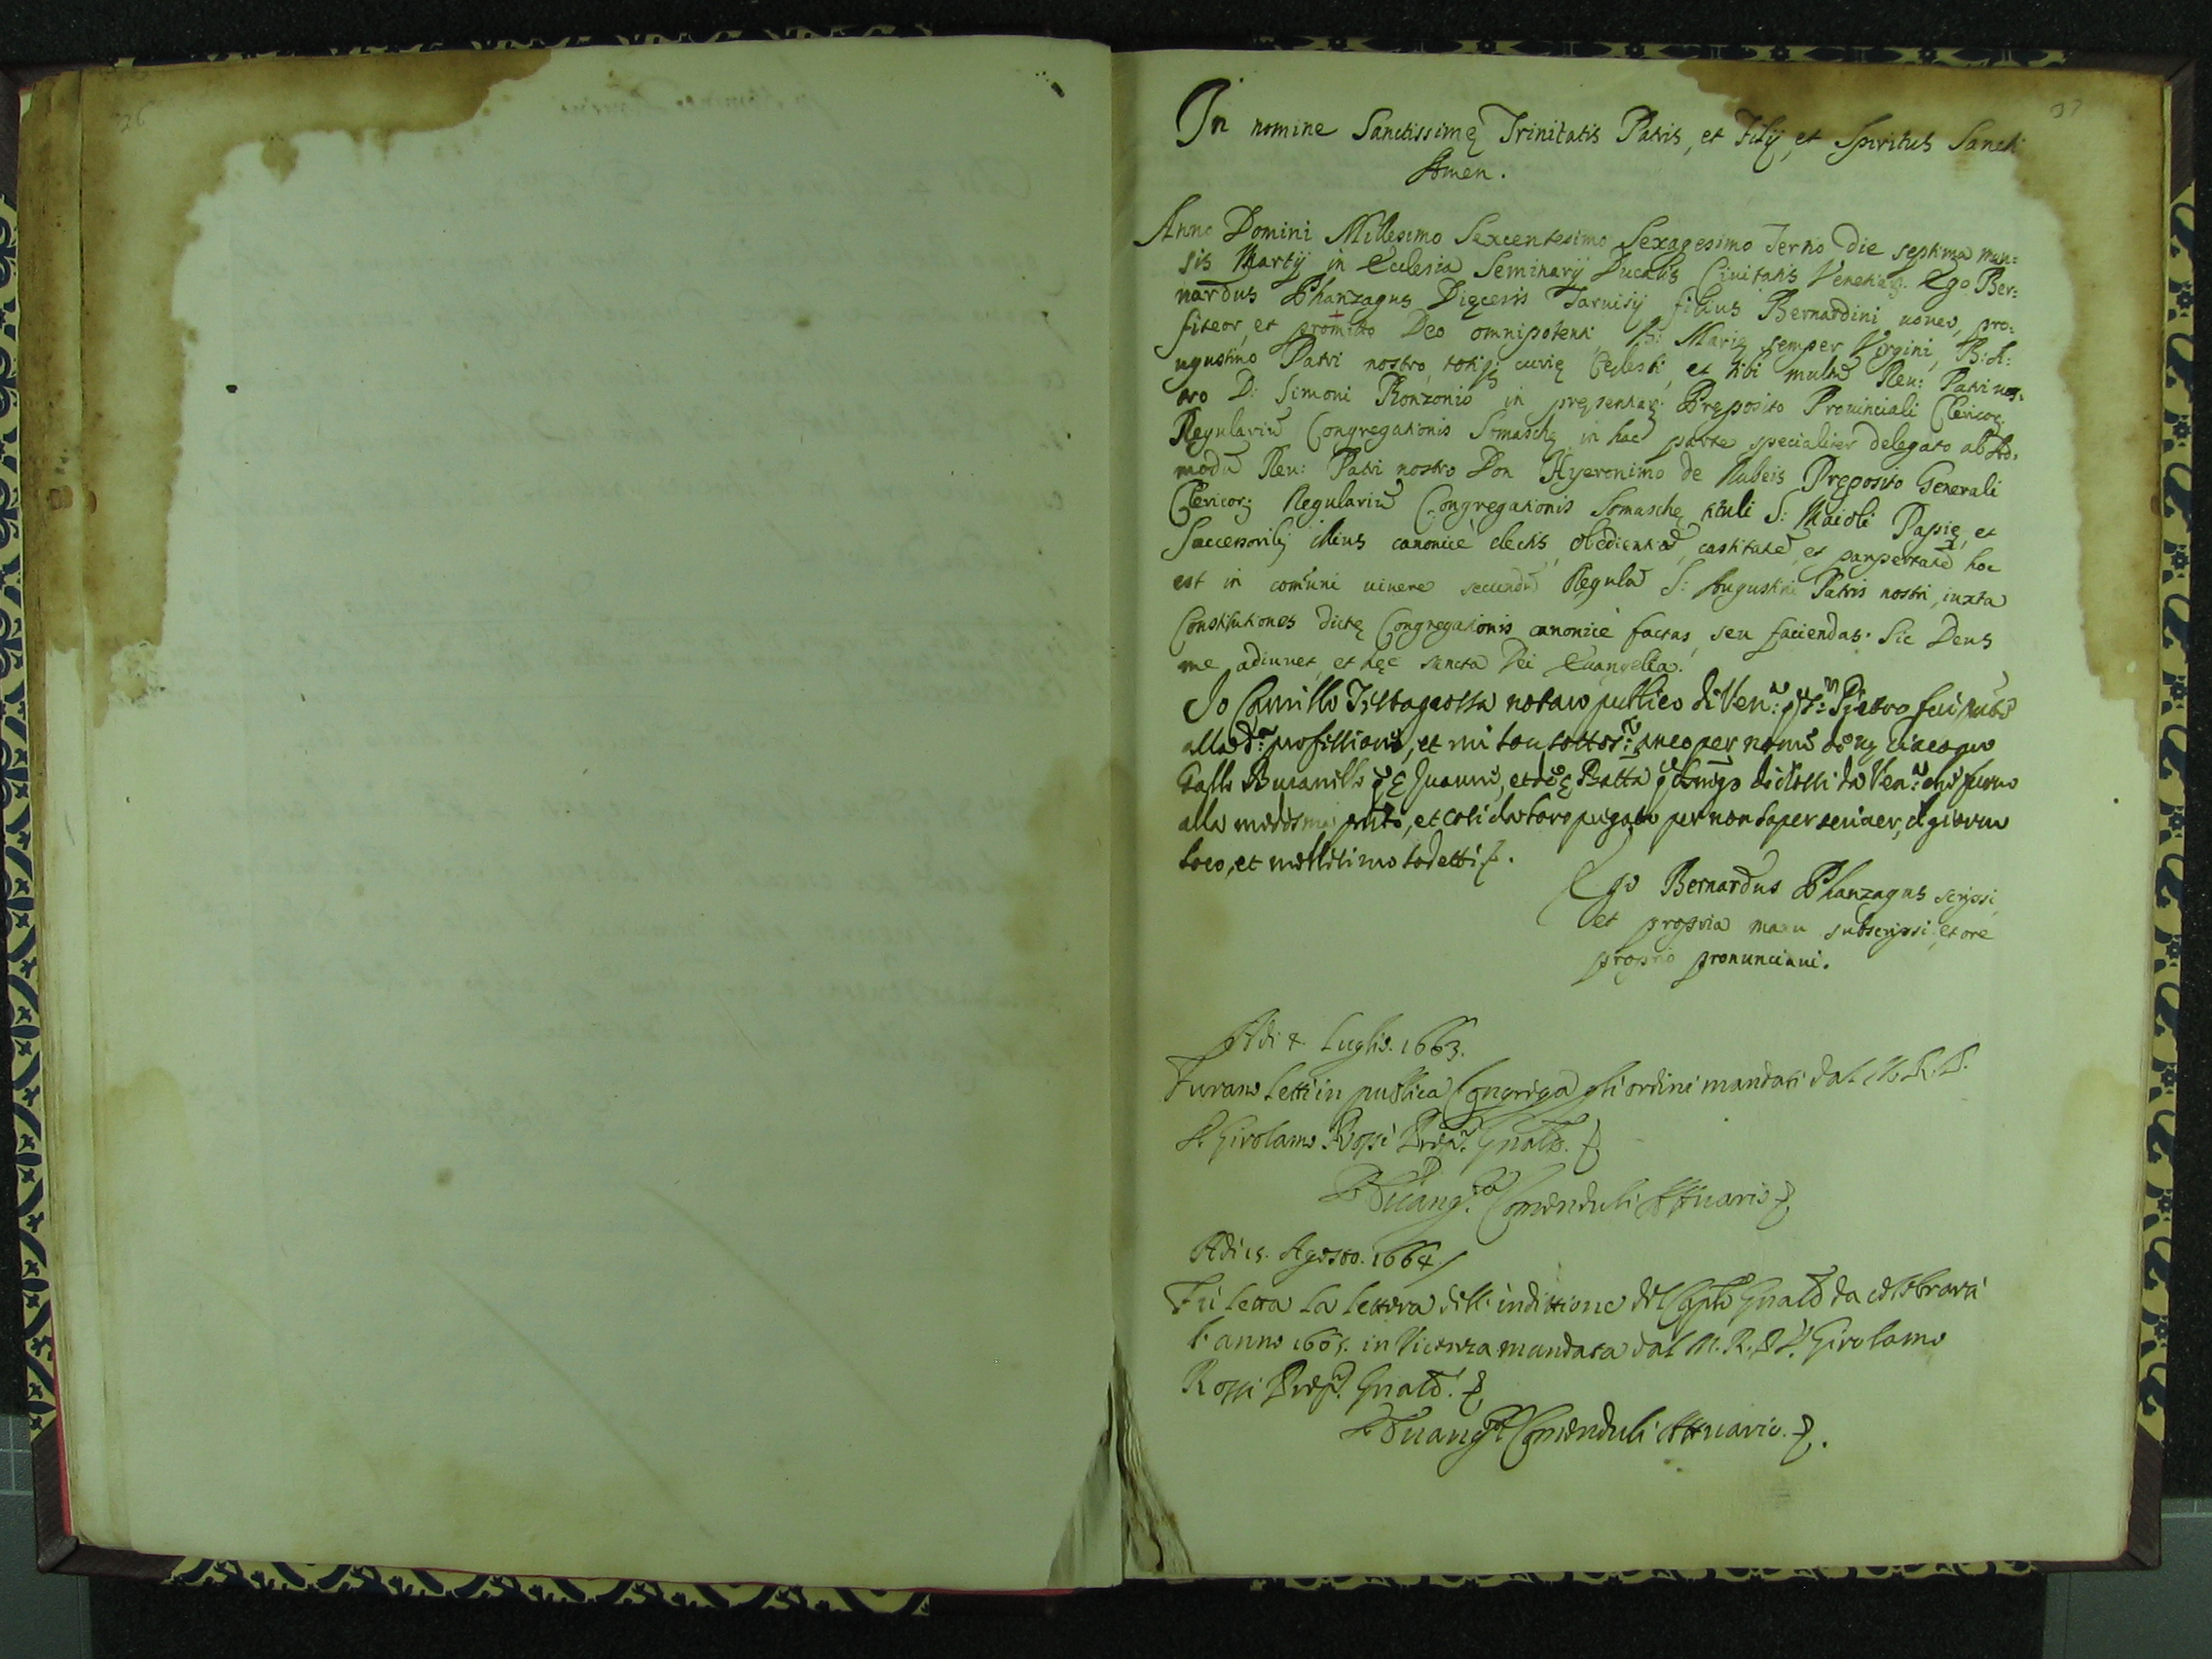 26
37
In nomine Sanctissimę Trinitatis Patris, et Filij, et Spiritus Sancti
Amen.
Anno Domini Millesimo Sexcentesimo Sexagesimo Tertio Die septima men:
sis Martij in Ecclesia Seminarij Ducalis Ciuitatis Venetiarȝ. Ego Ber:
nardus Phanzagus Dięcesis Taruisij filius Bernardini, uoueo, pro:
fiteor, et promitto Deo omnipotenti, B: Marię semper Virgini, B: A:
ugustino Patri nostro, totiqȝ curię Cęlesti, et tibi multũ Reu: Patri nos:
tro D: Simoni Ronzonio in pręsentiarȝ Pręposito Prouinciali Clericorȝ
Regulariũ Congregationis Somaschę in hac parte specialiter delegato ab Ad:
modũ Reu: Patri nostro Don Hyeronimo de Rubeis Pręposito Generali
Clericorȝ Regulariũ Congregationis Somaschę tituli S: Maioli Papię, et
Successoribȝ illius canonicè electis, obedientiã, castitatẽ, et paupertatẽ hoc
est in com̃uni uiuere secundũ Regulã S: Augustini Patris nostri, iuxta
Constitutiones dictę Congregationis canonicè factas, seu faciendas. Sic Deus
me adiuuet, et hęc sancta Dei Euangelia.
Io Camillo notaro publico di Ven:ª Pietro fui
alla professione, et mi son sottos: per nome
Gallo Zuanne, Batta da Ven:ª che furno
alla medesma, et cosi da loro pregato per non saper scriuer, il giorno
loco, et millesimo sodetti.
Ego Bernardus Phanzagus scripsi,
et propria manu subscripsi, et ore
proprio pronunciaui.
Adi Luglio. 1663.
Furano letti in publica Congrega gli ordini mandati dal M. R. P.
D. Girolamo Rossi Prep.º Gnale.
D. Euang.ta Comenduli Attuario
Adi 15. Agosto. 1664
Fù letta la lettera dell' indittione del Caplo Gnale da celebrarsi
l'anno 1665. in Vicenza mandata dal M. R. P. D. Girolamo
Rossi Prep.º Gnale.
D. Euang.ta Comenduli Attuario.